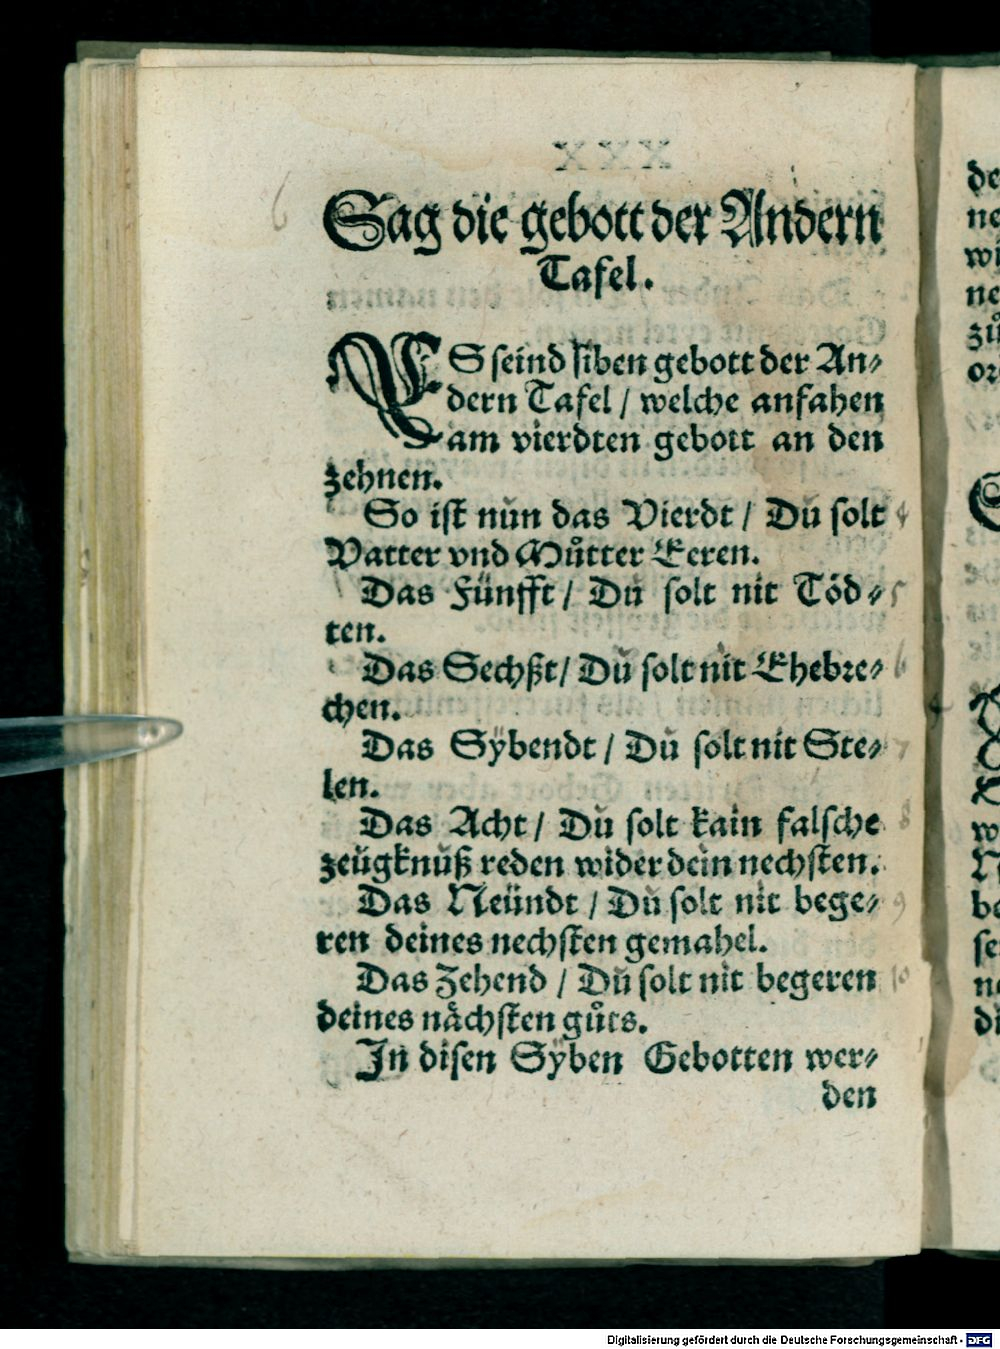 Sag die gebott der Andern
Tafel.
ES seind siben gebott der An⸗
dern Tafel / welche anfahen
am vierdten gebott an den
zehnen.
So ist nŭn das Vierdt / Dŭ solt 4
Vatter vnd Můtter Eeren.
Das Fünfft / Dŭ solt nit Töd⸗ 5
ten.
Das Sechßt / Dŭ solt nit Ehebre⸗ 6
chen.
Das Sybendt / Dŭ solt nit Ste⸗ 7
len.
Das Acht / Dŭ solt kain falsche 8
zeŭgknŭß reden wider dein nechsten.
Das Neŭndt / Dŭ solt nit bege⸗ 9
ren deines nechsten gemahel.
Das Zehend / Dŭ solt nit begeren 10
deines nächsten gůts.
In disen Syben Gebotten wer⸗
den
Digitalisierung gefördert durch die Deutsche Forschungsgemeinschaft - DFG